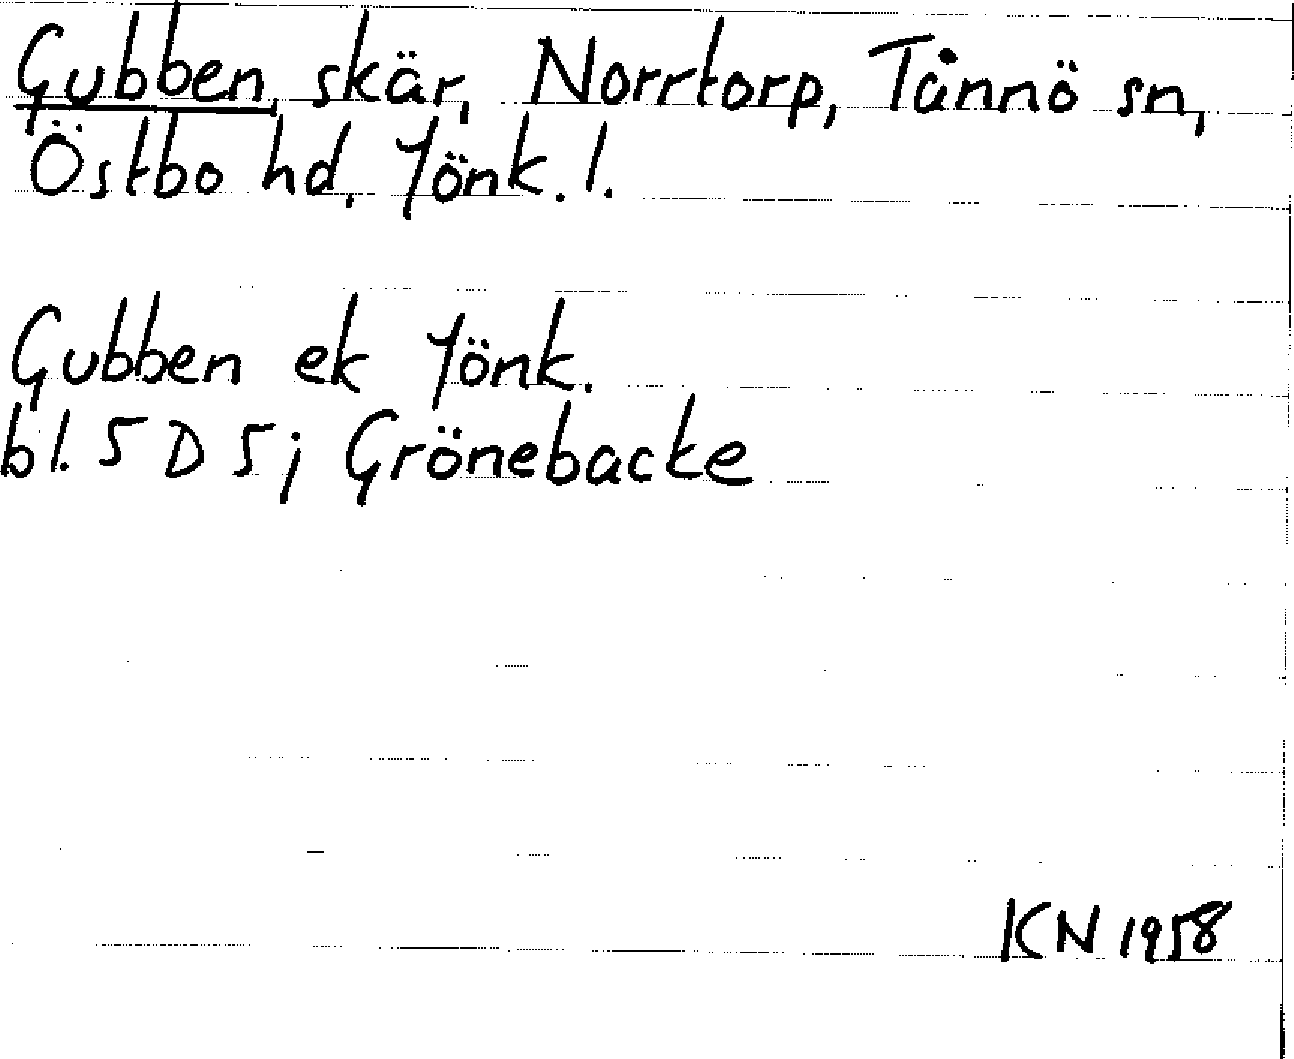 Gubben, skär, Norrtorp, Tånnö sn,
Östbo hd, Jönk. l.
Gubben ek Jönk.
bl. 5 D 5j Grönebacke
KN 1958